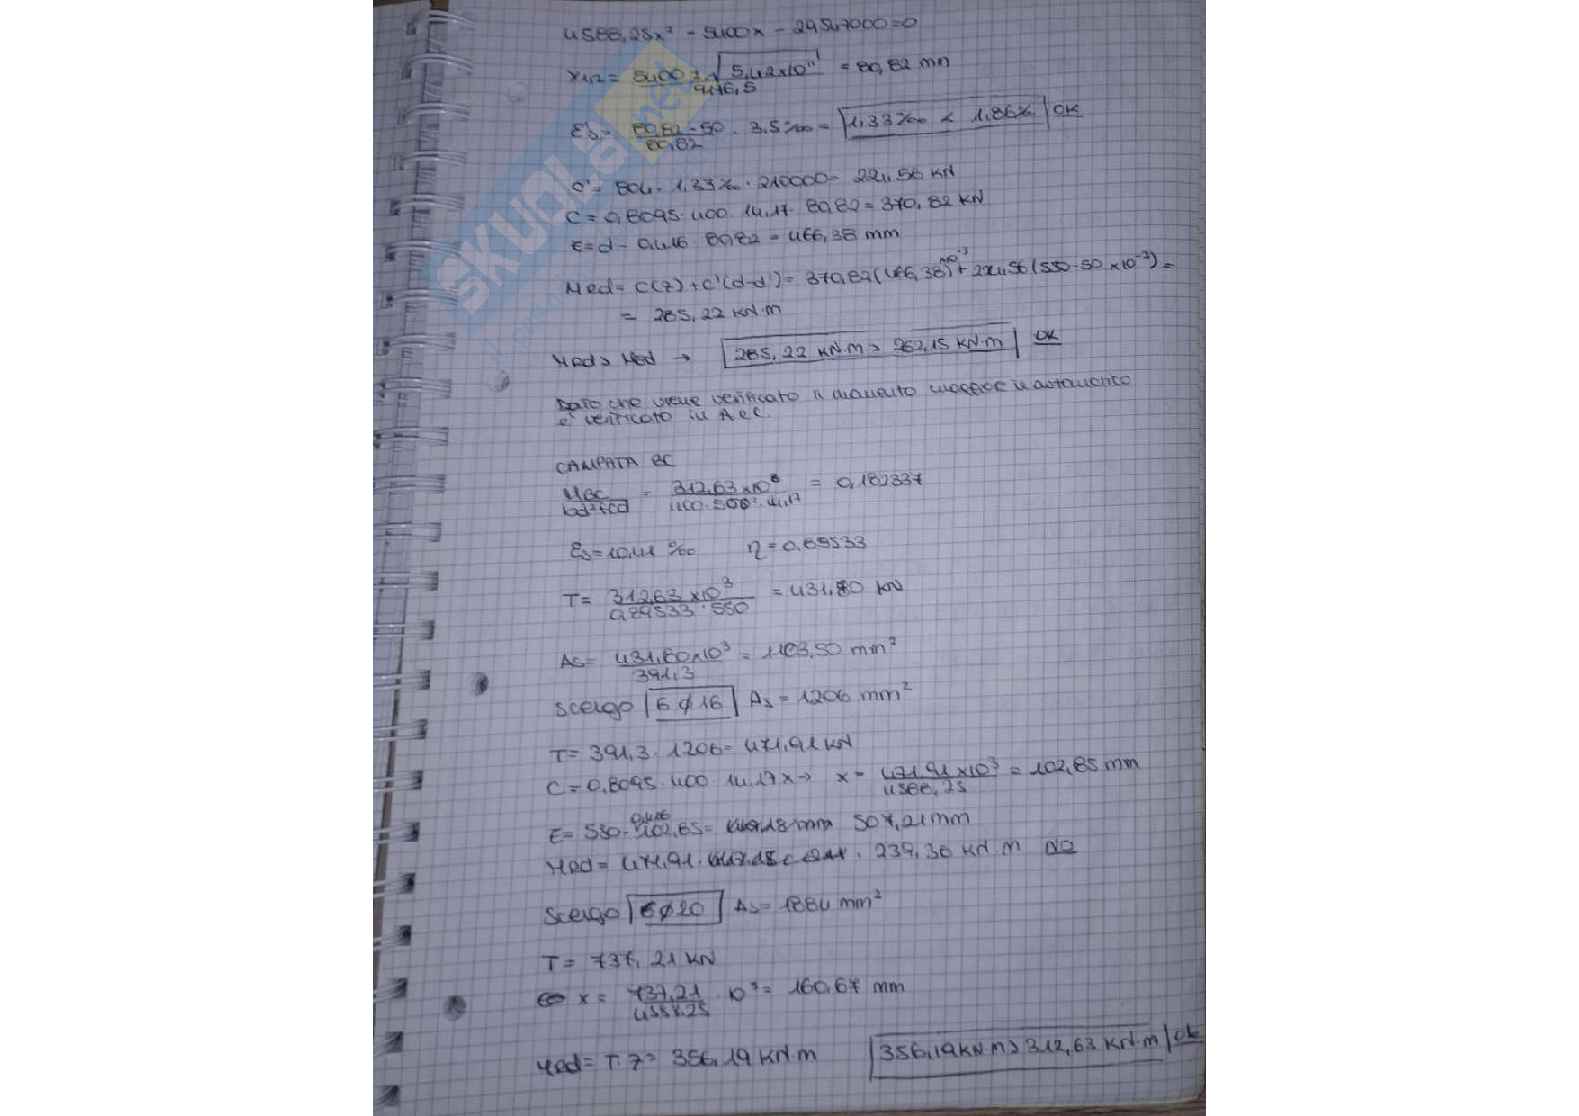 4588,25x² - 5400x - 29547000=0
x₁,₂ = 5400 ± √5,42x10¹¹ / 9176,5 = 80,82 mm
ε's = 80,82-50 / 80,82 · 3,5‰ = 1,33‰ < 1,86‰ OK
C' = 804 · 1,33‰ · 210000 = 224,56 KN
C = 0,8095 · 400 · 14,17 · 80,82 = 370,82 KN
z = d - 0,416 · 80,82 = 466,38 mm
MRd = C(z) + C'(d-d') = 370,82(466,38)x10⁻³ + 224,56(550-50 x10⁻³) =
= 285,22 KN·m
MRd > MEd → 285,22 KN·m > 262,15 KN·m OK
Dato che viene verificato il momento maggiore in automatico
e' verificato in A e C.
CAMPATA BC
MBC / bd²fcd = 312,63 x10⁶ / 400 · 550² · 14,17 = 0,182337
εs = 10,14 ‰ η = 0,89533
T = 312,63 x10³ / 0,89533 · 550 = 431,80 KN
As = 431,80x10³ / 391,3 = 1103,50 mm²
Scelgo 6 ϕ 16 As = 1206 mm²
T = 391,3 · 1206 = 471,91 KN
C = 0,8095 · 400 · 14,17x → x = 471,91 x10³ / 4588,25 = 102,85 mm
z = 550 - 0,416 · 102,85 = 507,21 mm
MRd = 471,91 · 239,36 KN·m NO
Scelgo 6ϕ20 As = 1884 mm²
T = 737,21 KN
x = 737,21 / 4588,25 · 10³ = 160,67 mm
MRd = T·z = 356,19 KN·m 356,19 KN·m > 312,63 KN·m OK
SKUOLA.net